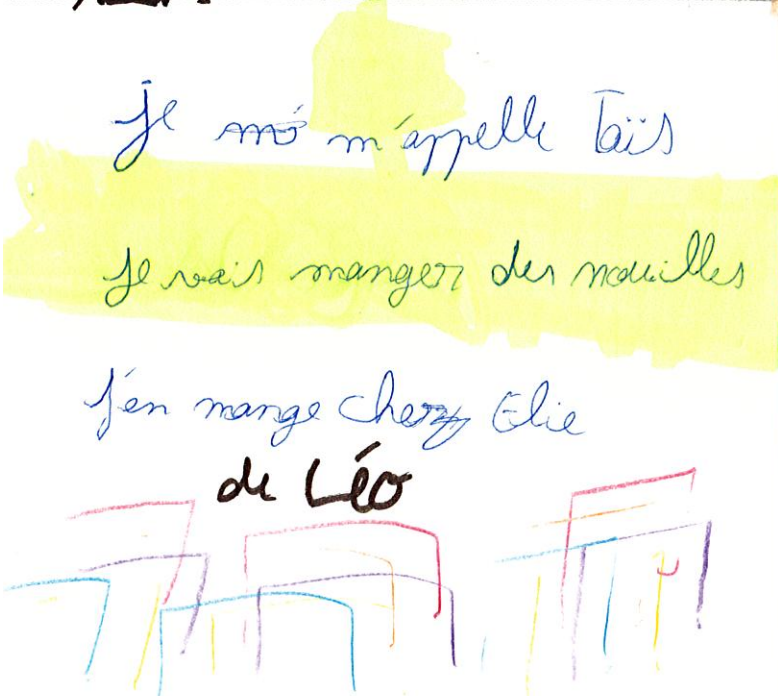 je m'appelle Taïs
je vais manger des nouilles
j'en mange chez Elie
de Léo